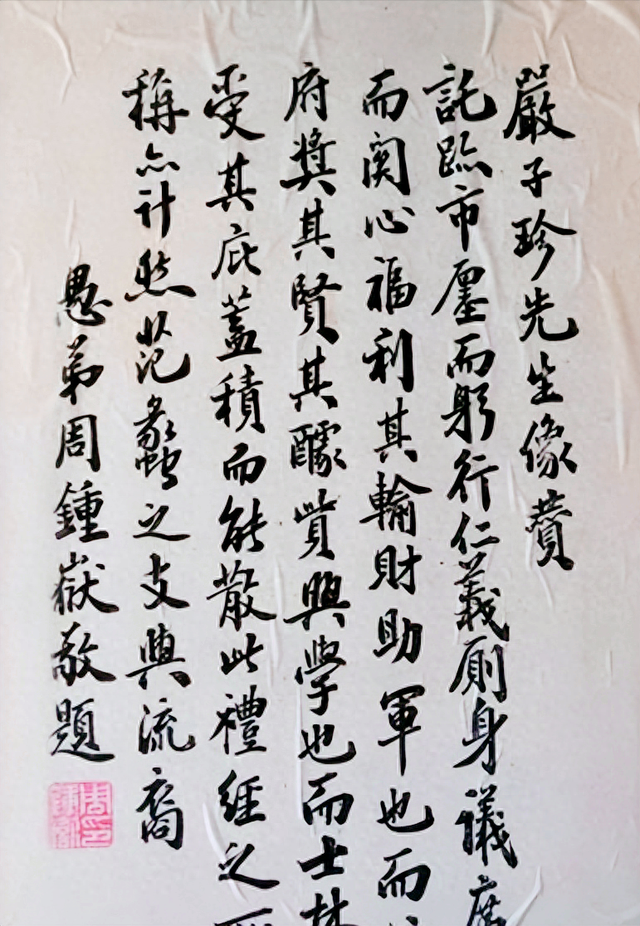 嚴子珍先生像贊
託跡市廛而躬行仁義廁身議席
而関心福利其輸財助軍也而
府奬其賢其醵貲興學也而士林
受其庇蓋積而能散此禮經之所
稱亦計然范蠡之支與流裔
愚弟周鍾嶽敬題
周印
鍾嶽